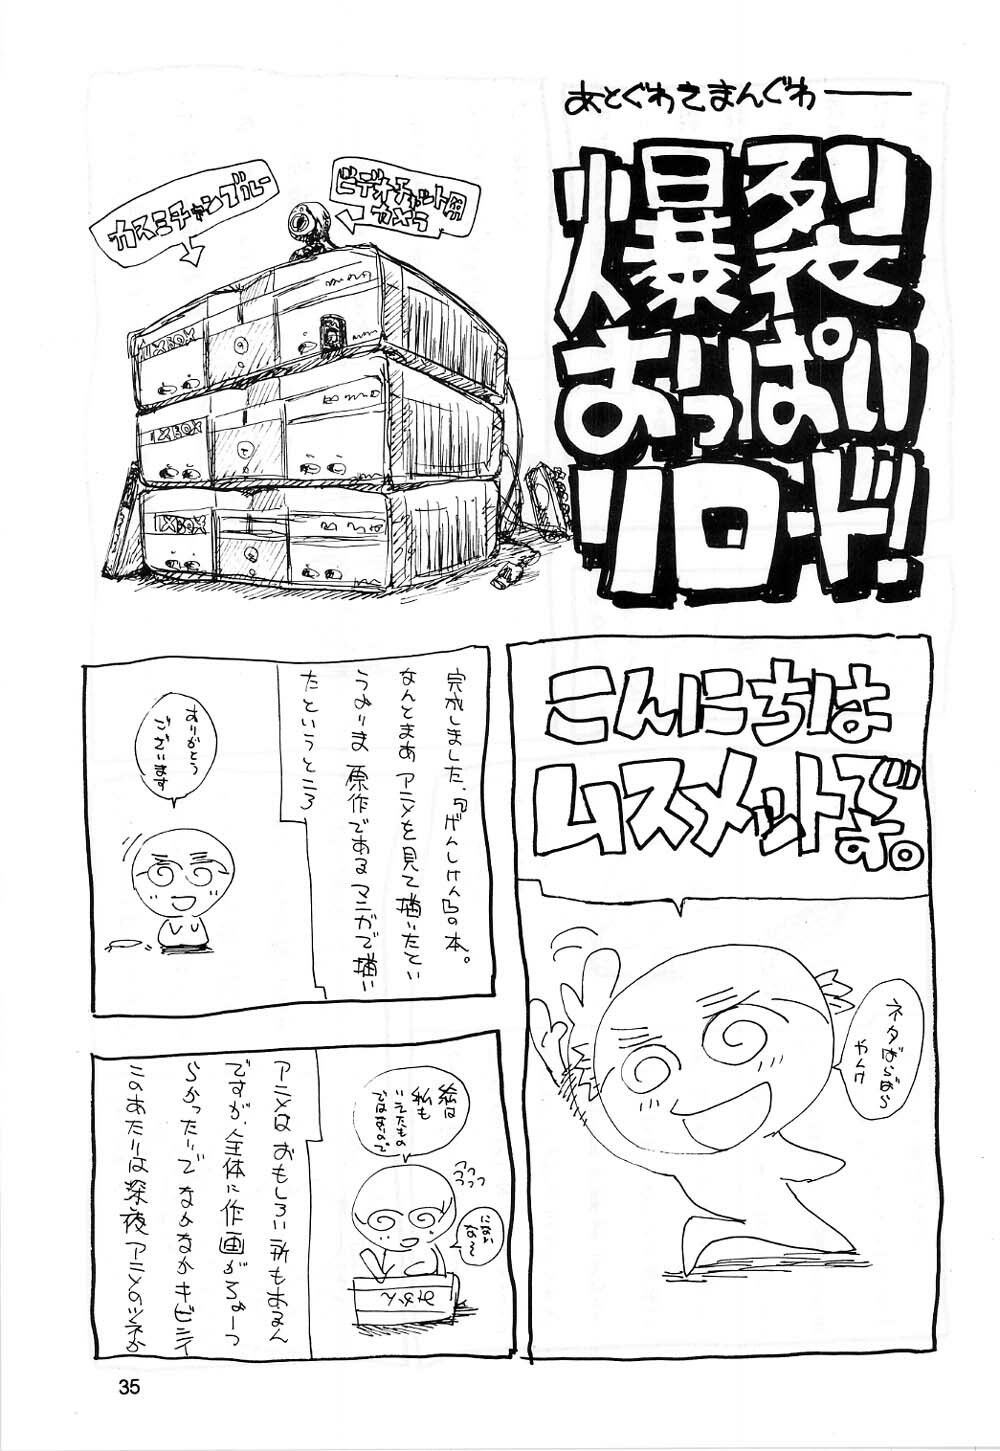 あとぐわきまんぐわ――
爆裂
おっぱい
リロード!
ビデオチャット用
カメラ
カスミチャンブルー
XBOX
XBOX
XBOX
こんにちは
ムスメットです。
ネタばらばら
やんけ
完成しました、『げんしけん』の本。
なんとまあ アニメを見て描いたてい
うよりま 原作であるマンガで描い
たというところ
ありがとう
ございます
絵は
私も
いえたもの
ではないので
にがい
な〜
みかん
アニメは おもしろい所もあるん
ですが、全体に作画がちょーっ
らかったりで なかなかキビシイ
このあたりは深夜アニメのツネか
35